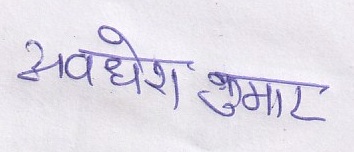 अवधेश कुमार